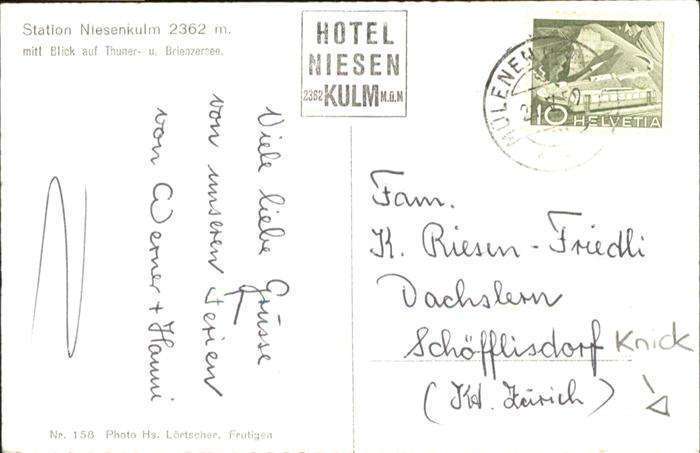 Station Niesenkulm 2362 m.
mitt Blick auf Thuner- u. Brienzersee.
HOTEL
NIESEN
2362 KULM M.ü.M
MÜLENEN
10 HELVETIA
Viele liebe Grüsse
von unseren Ferien
von Werner + Hanni
Fam.
K. Riesen - Friedli
Dachslern
Schöfflisdorf Knick
(Kt. Zürich)
Nr. 158 Photo Hs. Lörtscher, Frutigen